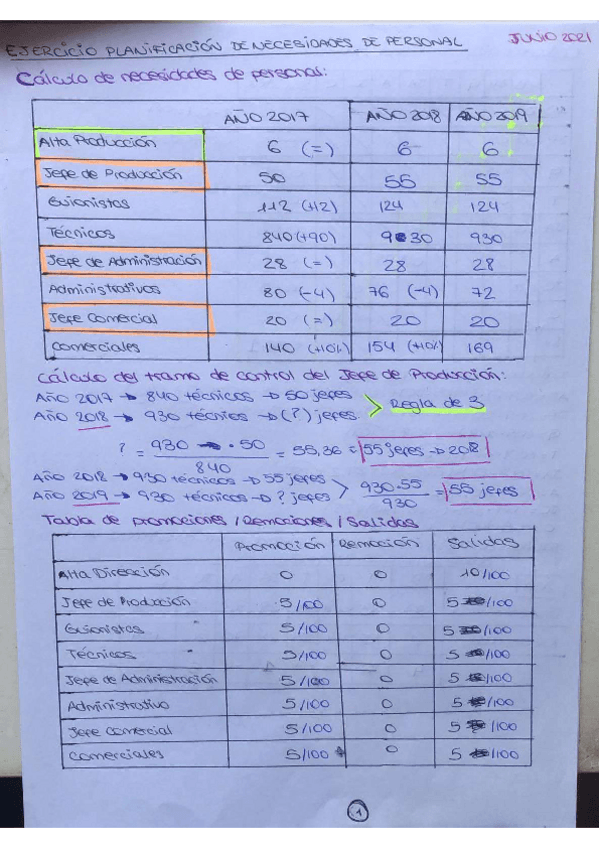 EJERCICIO PLANIFICACIÓN DE NECESIDADES DE PERSONAL JUNIO 2021
Cálculo de necesidades de personal:
AÑO 2017 AÑO 2018 AÑO 2019
Alta Producción 6 (=) 6 6
Jefe de Producción 50 55 55
Guionistas 112 (+12) 124 124
Técnicos 840 (+90) 930 930
Jefe de Administración 28 (=) 28 28
Administrativos 80 (-4) 76 (-4) 72
Jefe Comercial 20 (=) 20 20
Comerciales 140 (+10%) 154 (+10%) 169
Cálculo del tramo de control del Jefe de Producción:
Año 2017 → 840 técnicos → 50 jefes
Regla de 3
Año 2018 → 930 técnicos → (?) jefes
? = 930 · 50 / 840 = 55,36 = 55 jefes → 2018
Año 2018 → 930 técnicos → 55 jefes
Año 2019 → 930 técnicos → ? jefes > 930·55 / 930 = 55 jefes
Tabla de promociones / Remociones / Salidas
Promoción Remoción Salidas
Alta Dirección 0 0 10/100
Jefe de Producción 5/100 0 5/100
Guionistas 5/100 0 5/100
Técnicos 5/100 0 5/100
Jefe de Administración 5/100 0 5/100
Administrativo 5/100 0 5/100
Jefe Comercial 5/100 0 5/100
Comerciales 5/100 0 5/100
1